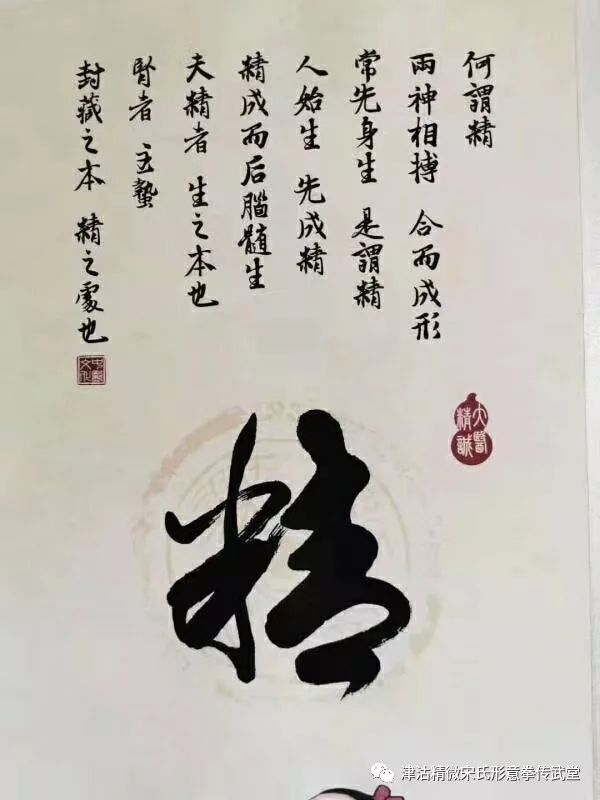 何謂精
兩神相搏 合而成形
常先身生 是謂精
人始生 先成精
精成而后腦髓生
夫精者 生之本也
腎者 主蟄
封藏之本 精之處也
中醫文化
大醫精誠
精
津沽精微宋氏形意拳传武堂